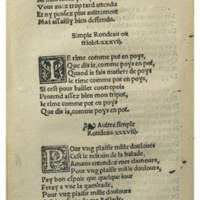 Vous auez trop tard entendu
Et ny pensez plus aultrement
Mal assailly bien deffendu.
Simple Rondeau ou
triolet.xxxvij.
IE rime comme pot en poys,
Que dis ie, comme poys en pot,
Quand ie fais mettre et poys
Que dis ie, comme poys en pot,
Si cest pour bailler contrepoys
Jentend assez bien mon tripot,
Ie rime comme pot en poys,
Que dis ie, comme poys en pot.
Aultre simple
Rondeau.xxxviij.
POur vng plaisir mille doulours
Cest le refrain de la balade,
Amans entendez mes clamours,
Pour vng plaisir mille doulours
Pay bon espoir que quelque iour
Feray a vne la gambade,
Pour vng plaisir mille doulours